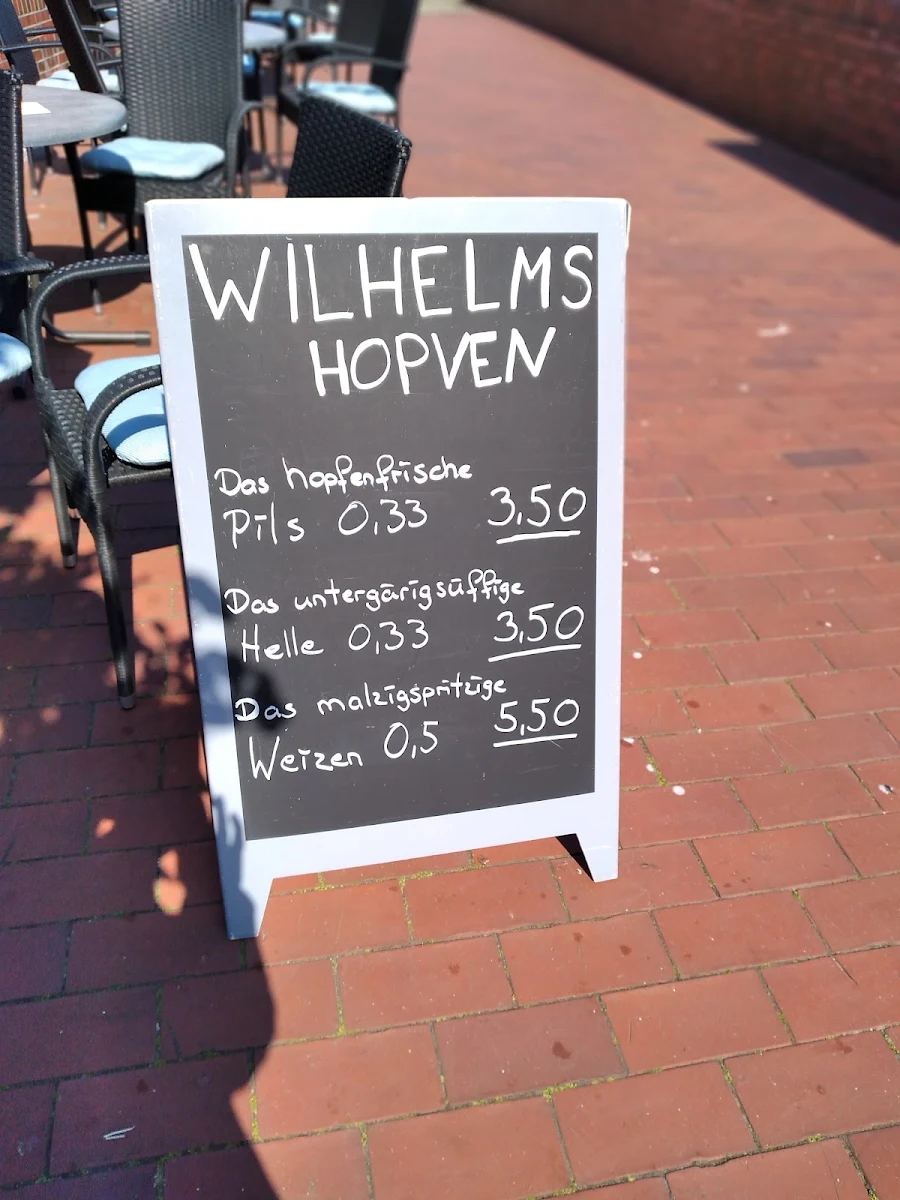 WILHELMS
HOPVEN
Das hopfenfrische
Pils 0,33 3,50
Das untergärigsüffige
Helle 0,33 3,50
Das malzigspritzige
Weizen 0,5 5,50